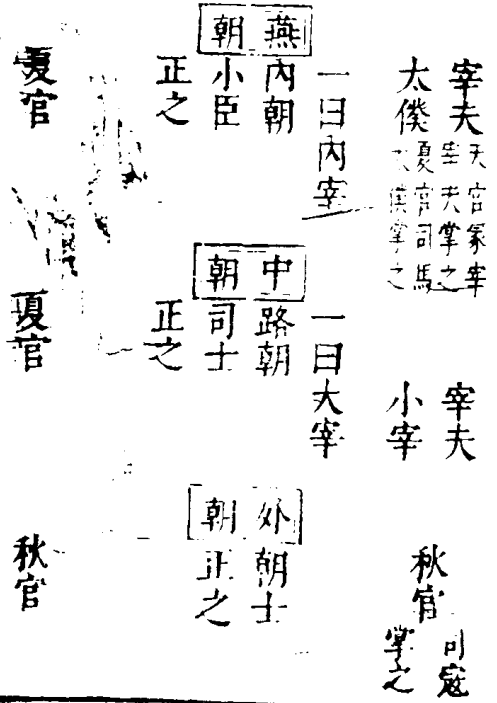 宰夫
太僕
天官冢宰
宰夫掌之
夏官司馬
太僕掌之
一曰內宰
燕朝
內朝
小臣
正之
夏官
宰夫
小宰
一曰大宰
中朝
路朝
司士
正之
夏官
秋官
司寇
掌之
外朝
朝士
正之
秋官